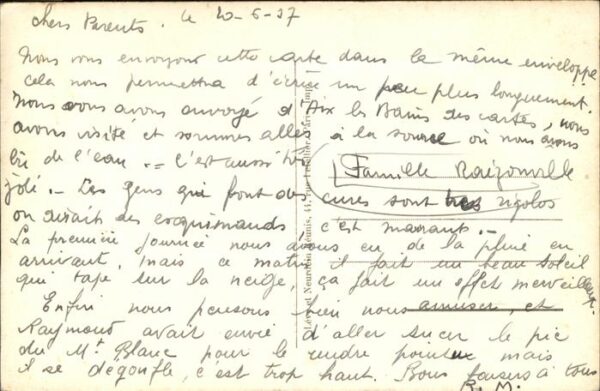 chers Parents. le 20-6-37
Nous vous envoyons cette carte dans la même enveloppe
cela nous permettra d'écrire un peu plus longuement.
Nous vous avons envoyé d'Aix les Bains des cartes, nous
avons visité et sommes allés à la source où nous avons
bu de l'eau. - C'est aussi très
joli. - Les gens qui font des cures sont très rigolos
Famille
on dirait des esquimauds c'est marrant. -
La première journée nous avons eu de la pluie en
arrivant, mais ce matin il fait un beau soleil
qui tape sur la neige, ça fait un effet merveilleux.
Enfin nous pensons bien nous amuser, et
Raymond avait envie d'aller sucer le pic
du Mt Blanc pour le rendre pointu mais
il se dégonfle, c'est trop haut. Bons baisers à tous
R. M.